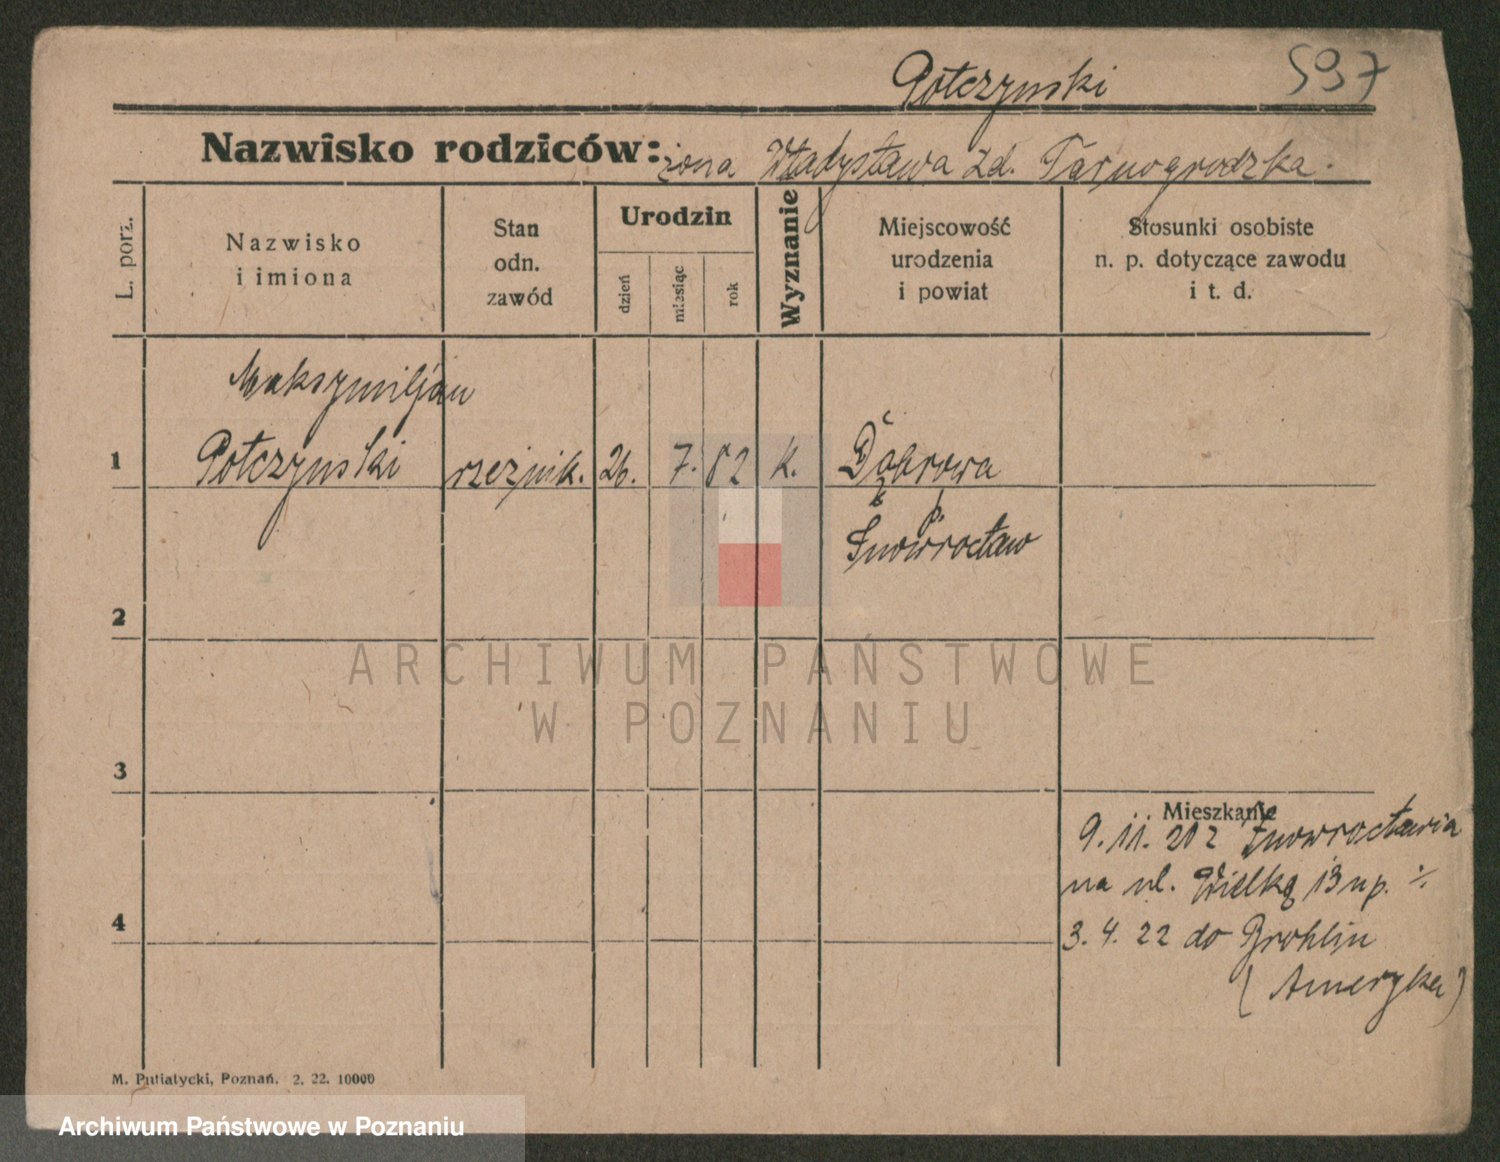 Potczynski 597
Nazwisko rodziców: żona Władysława zd. Tarnogrodzka.
L. porz.
Nazwisko
i imiona
Stan
odn.
zawód
Urodzin
dzień
miesiąc
rok
Wyznanie
Miejscowość
urodzenia
i powiat
Stosunki osobiste
n. p. dotyczące zawodu
i t. d.
Maksymiljan
1 Potczynski rzeźnik. 26. 7. 82 k. Dąbrowa
p.
Inowrocław
2
3
Mieszkanie
9. 11. 20 z Inowrocławia
na ul. Wielką 13 u p. ·/.
4
3. 4. 22 do Brohlin
(Ameryka)
M. Putiatycki, Poznań, 2. 22. 10000
ARCHIWUM PAŃSTWOWE
W POZNANIU
Archiwum Państwowe w Poznaniu